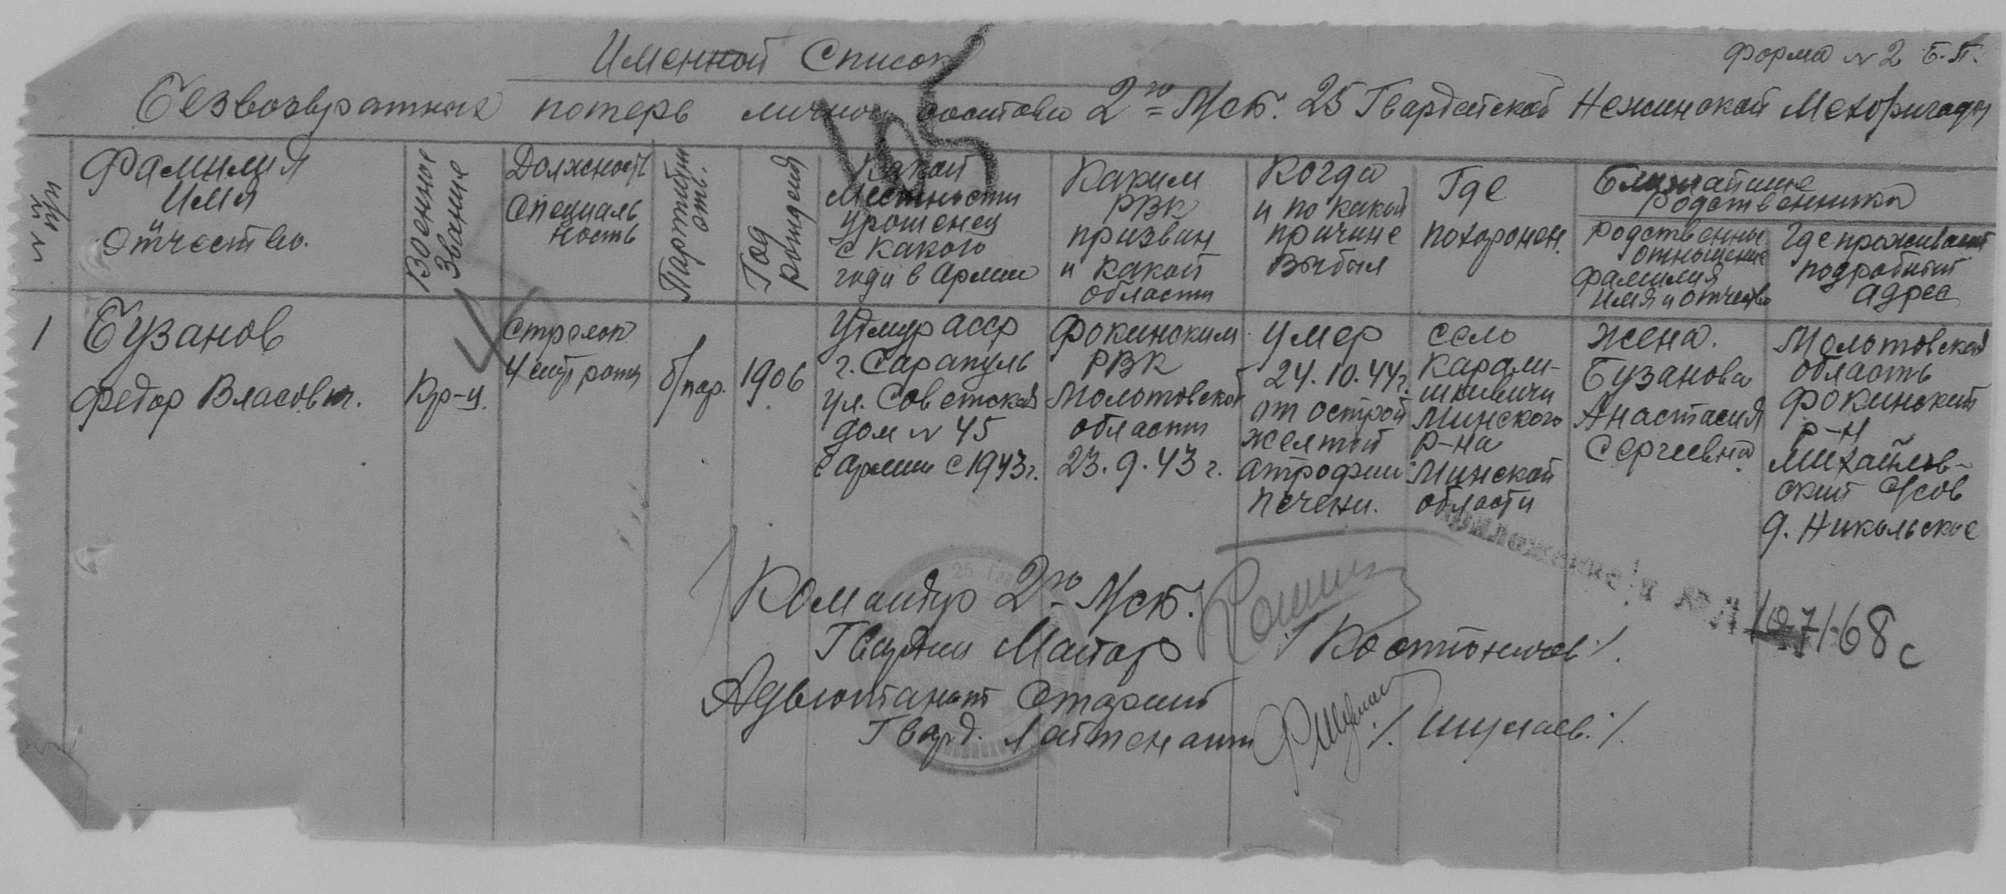 Именной Список
Форма №2 Б.П.
Безвозвратных потерь личного состава 2го Мсб. 25 Гвардейской Нежинской Мехбригады
№ п/п
Фамилия
Имя
Отчество.
Военное
Звание
Должность
Специаль
ность
Партийн
ость.
Год
рождения
Какой
местности
урожденец
с какого
года в армии
Каким
РВК
призван
и какой
области
Когда
и по какой
причине
выбыл
Где
похоронен.
Ближайшие
родственники
Родственные
отношение
Фамилия
имя и отчество
Где проживает
подробный
адрес
1
Бузанов
Федор Власович.
Кр-ц.
Стрелок
б/пар.
1906
Удмур АССР
г. Сарапуль
ул. Советская
дом № 45
в армии с 1943 г.
Фокинским
РВК
Молотовской
области
23.9.43 г.
умер
24.10.44г.
от острой
желтой
атрофии
печени.
село
Минского
р-на
Минской
области
Жена.
Бузанова
Анастасия
Сергеевна
Молотовская
область
Фокинский
р-н
Михайлов-
ский с/сов
д. Никольское
105
Командир 2го Мсб.
Гвардии Майор
Адъютант Старший
Гвард. Лейтенант
25
68с